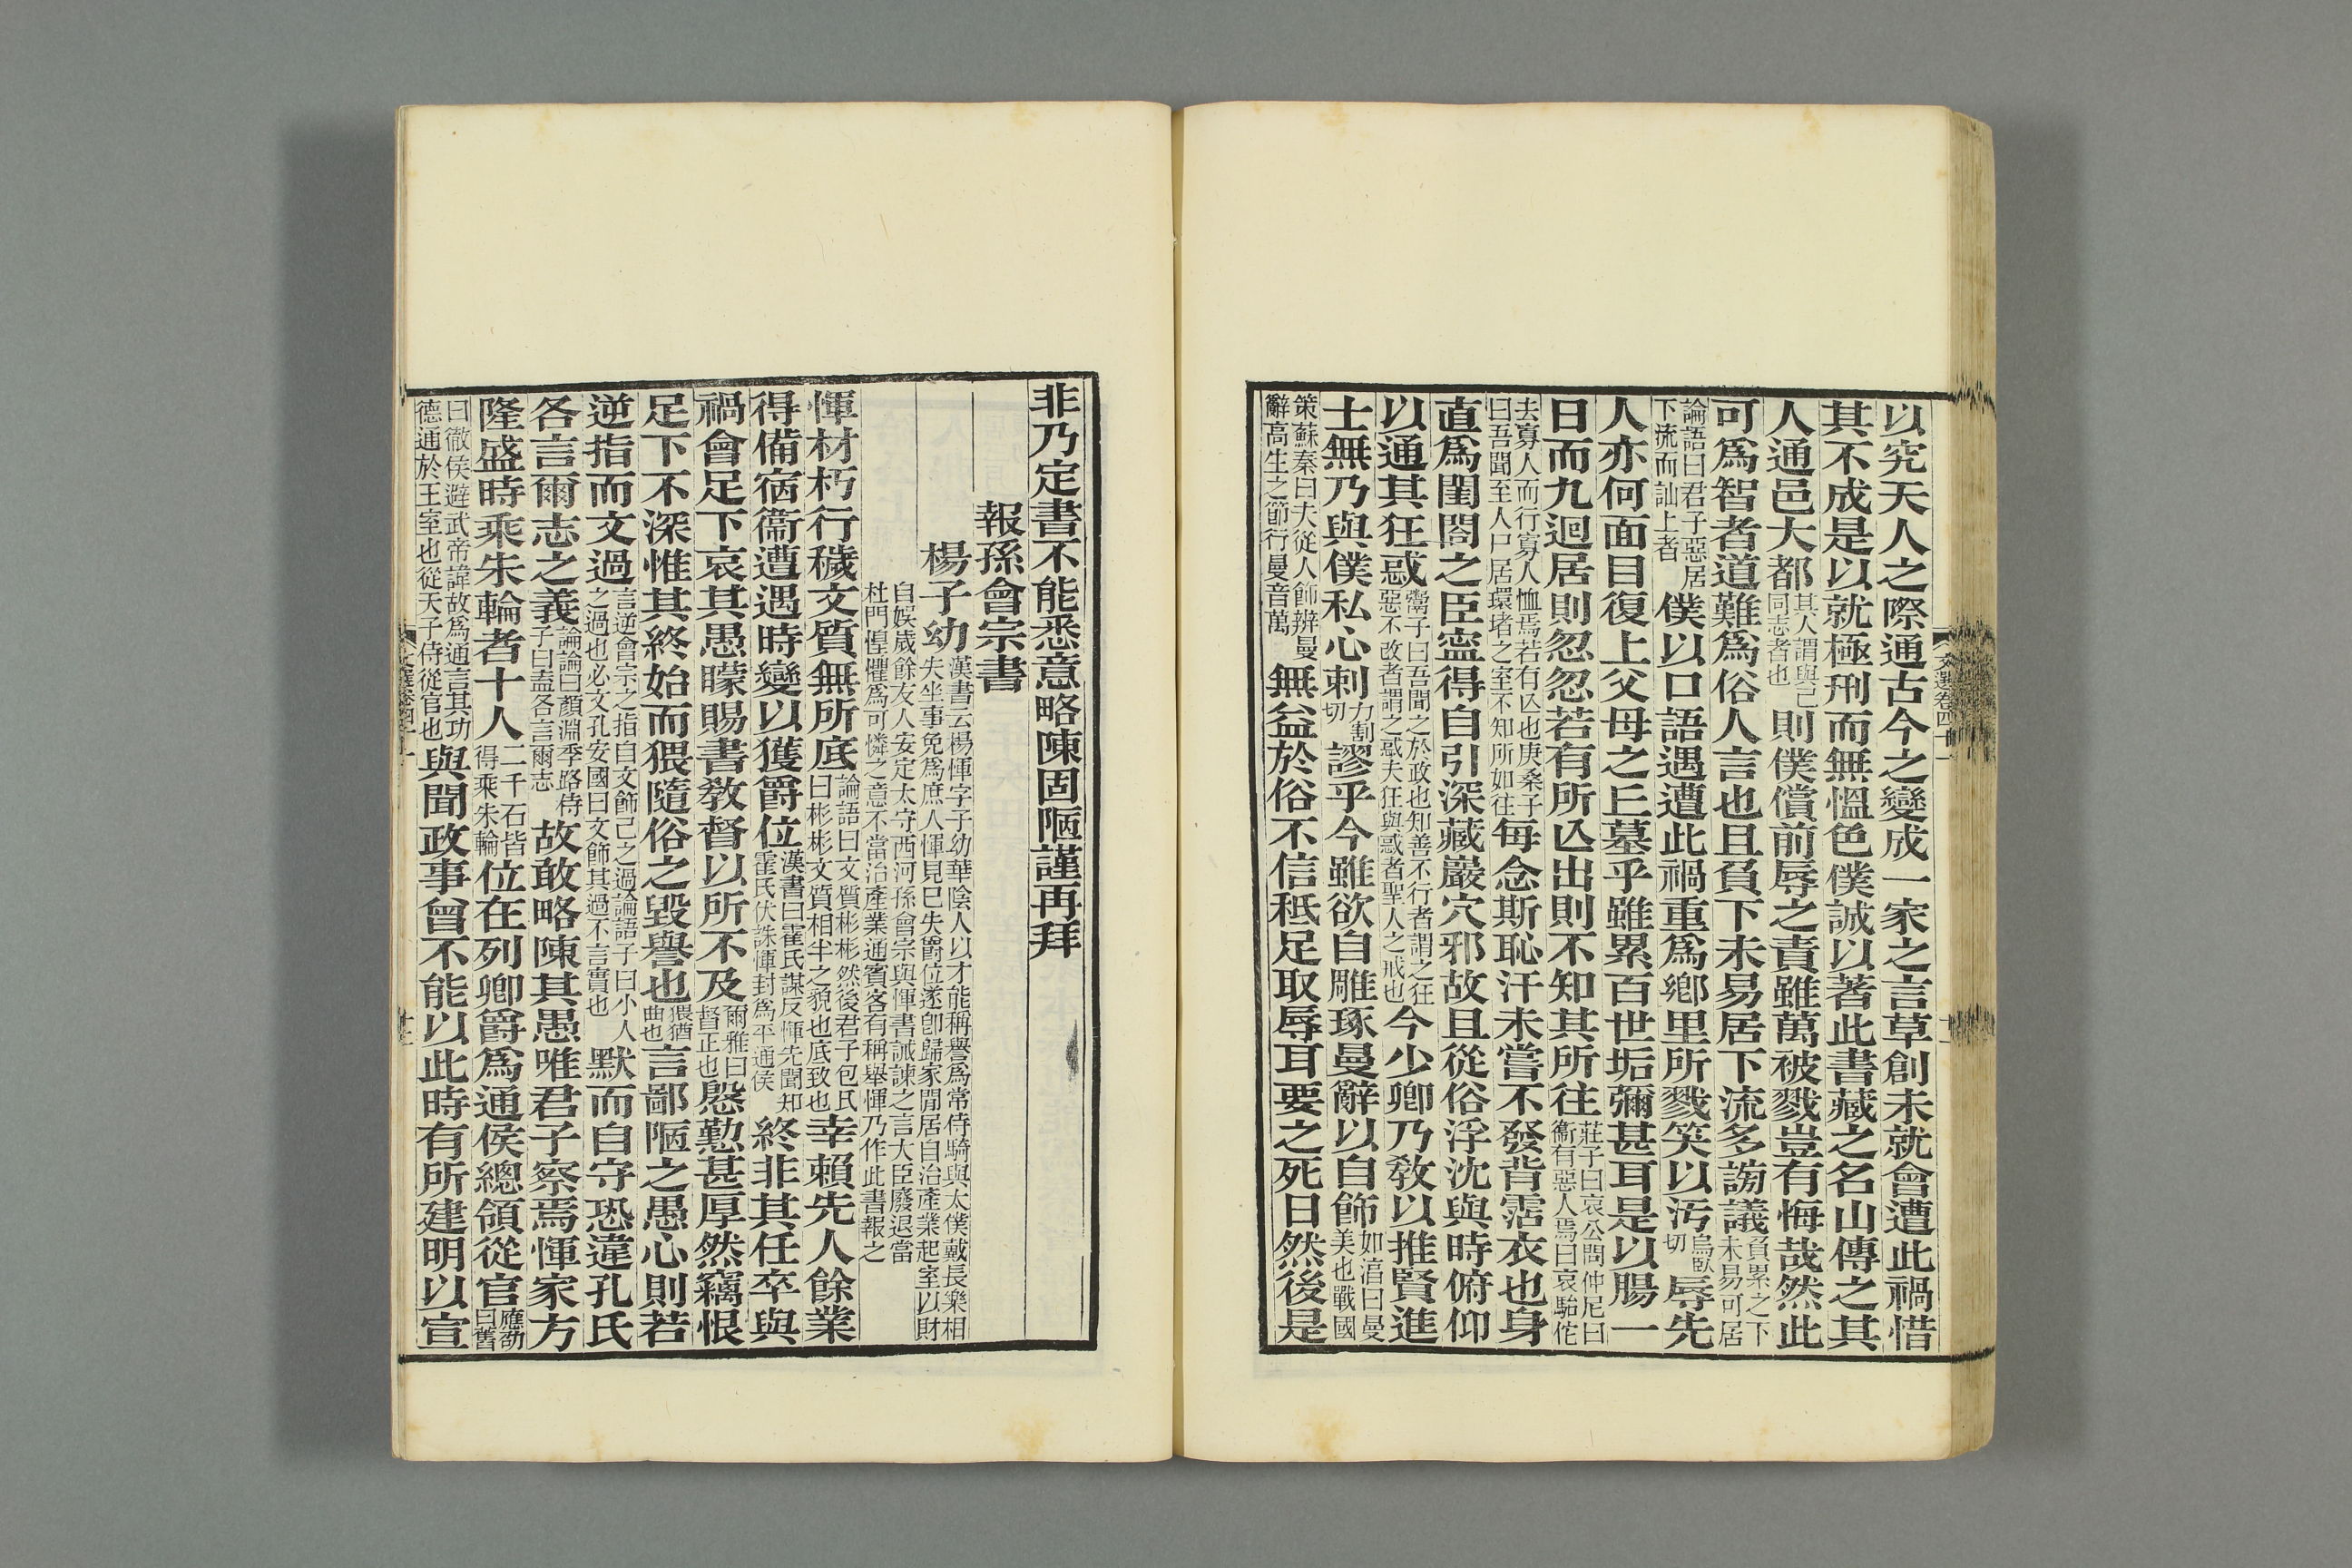 以究天人之際通古今之變成一家之言草創未就會遭此禍惜
其不成是以就極刑而無慍色僕誠以著此書藏之名山傳之其
人通邑大都其人謂與己同志者也則僕償前辱之責雖萬被戮豈有悔哉然此
可爲智者道難爲俗人言也且負下未易居下流多謗議負累之下未易可居
論語曰君子惡居下流而訕上者僕以口語遇遭此禍重爲鄉里所戮笑以汚烏臥切辱先
人亦何面目復上父母之丘墓乎雖累百世垢彌甚耳是以腸一
日而九迴居則忽忽若有所亾出則不知其所往莊子曰哀公問仲尼曰衞有惡人焉曰哀駘佗
去寡人而行寡人恤焉若有亾也庚桑子曰吾聞至人尸居環堵之室不知所如往每念斯恥汗未嘗不發背霑衣也身
直爲閨閤之臣寍得自引深藏巖穴邪故且從俗浮沈與時俯仰
以通其狂惑鬻子曰吾聞之於政也知善不行者謂之狂惡不改者謂之惑夫狂與惑者聖人之戒也今少卿乃敎以推賢進
士無乃與僕私心剌力割切謬乎今雖欲自雕琢曼辭以自飾如淳曰曼美也戰國
策蘇秦曰夫從人飾辨曼辭高生之節行曼音萬無益於俗不信秖足取辱耳要之死日然後是
文選卷四十一
非乃定書不能悉意略陳固陋謹再拜
報孫會宗書
楊子幼漢書云楊惲字子幼華陰人以才能稱譽爲常侍騎與太僕戴長樂相失坐事免爲庶人惲見已失爵位遂卽歸家閒居自治產業起室以財
自娛歲餘友人安定太守西河孫會宗與惲書誡諫之言大臣廢退當杜門惶懼爲可憐之意不當治產業通賓客有稱舉惲乃作此書報之
惲材朽行穢文質無所底論語曰文質彬彬然後君子包氏曰彬彬文質相半之貌也底致也幸賴先人餘業
得備宿衞遭遇時變以獲爵位漢書曰霍氏謀反惲先聞知霍氏伏誅惲封爲平通侯終非其任卒與
禍會足下哀其愚矇賜書敎督以所不及爾雅曰督正也慇懃甚厚然竊恨
足下不深惟其終始而猥隨俗之毀譽也猥猶曲也言鄙陋之愚心則若
逆指而文過言逆會宗之指自文飾己之過論語子曰小人之過也必文孔安國曰文飾其過不言實也默而自守恐違孔氏
各言爾志之義論論曰顏淵季路侍子曰盍各言爾志故敢略陳其愚唯君子察焉惲家方
隆盛時乘朱輪者十人二千石皆得乘朱輪位在列卿爵爲通侯總領從官應劭曰舊
曰徹侯避武帝諱故爲通言其功德通於王室也從天子侍從官也與聞政事曾不能以此時有所建明以宣